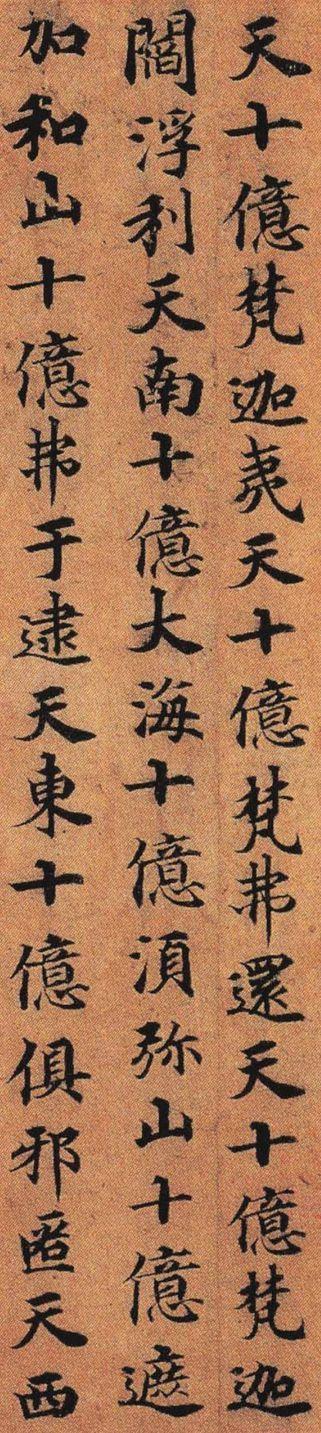 天十億梵迦夷天十億梵弗還天十億梵迦
閻浮利天南十億大海十億須弥山十億遮
加和山十億弗于逮天東十億俱邪匿天西